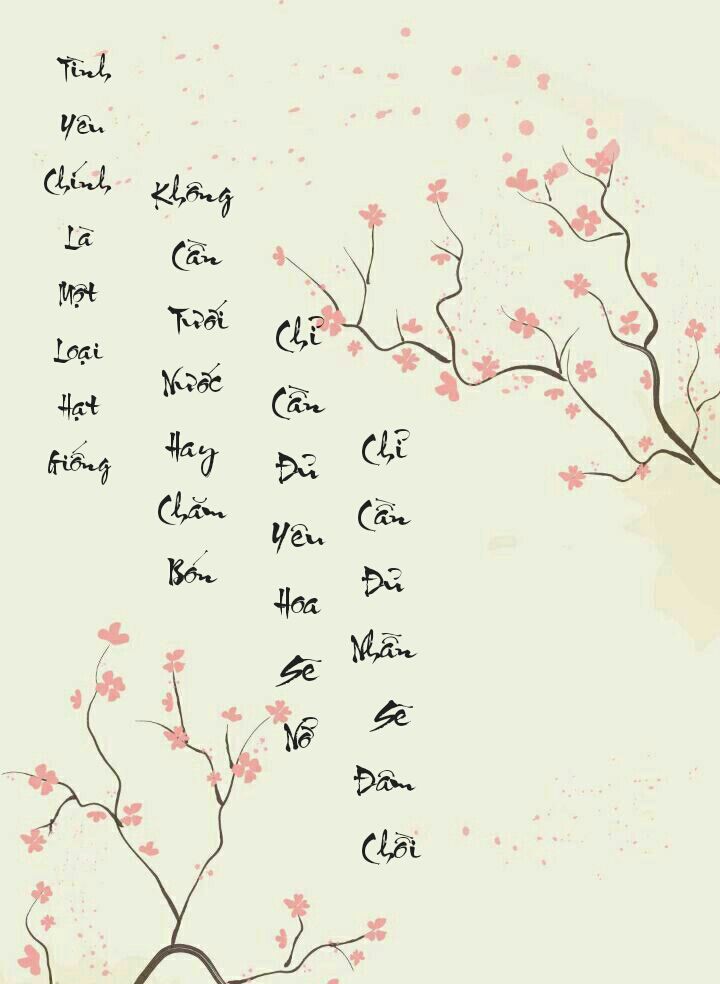 Tình Yêu Chính Là Một Loại Hạt Giống
Không Cần Tưới Nước Hay Chăm Bón
Chỉ Cần Đủ Yêu Hoa Sẽ Nở
Chỉ Cần Đủ Nhẫn Sẽ Đâm Chồi